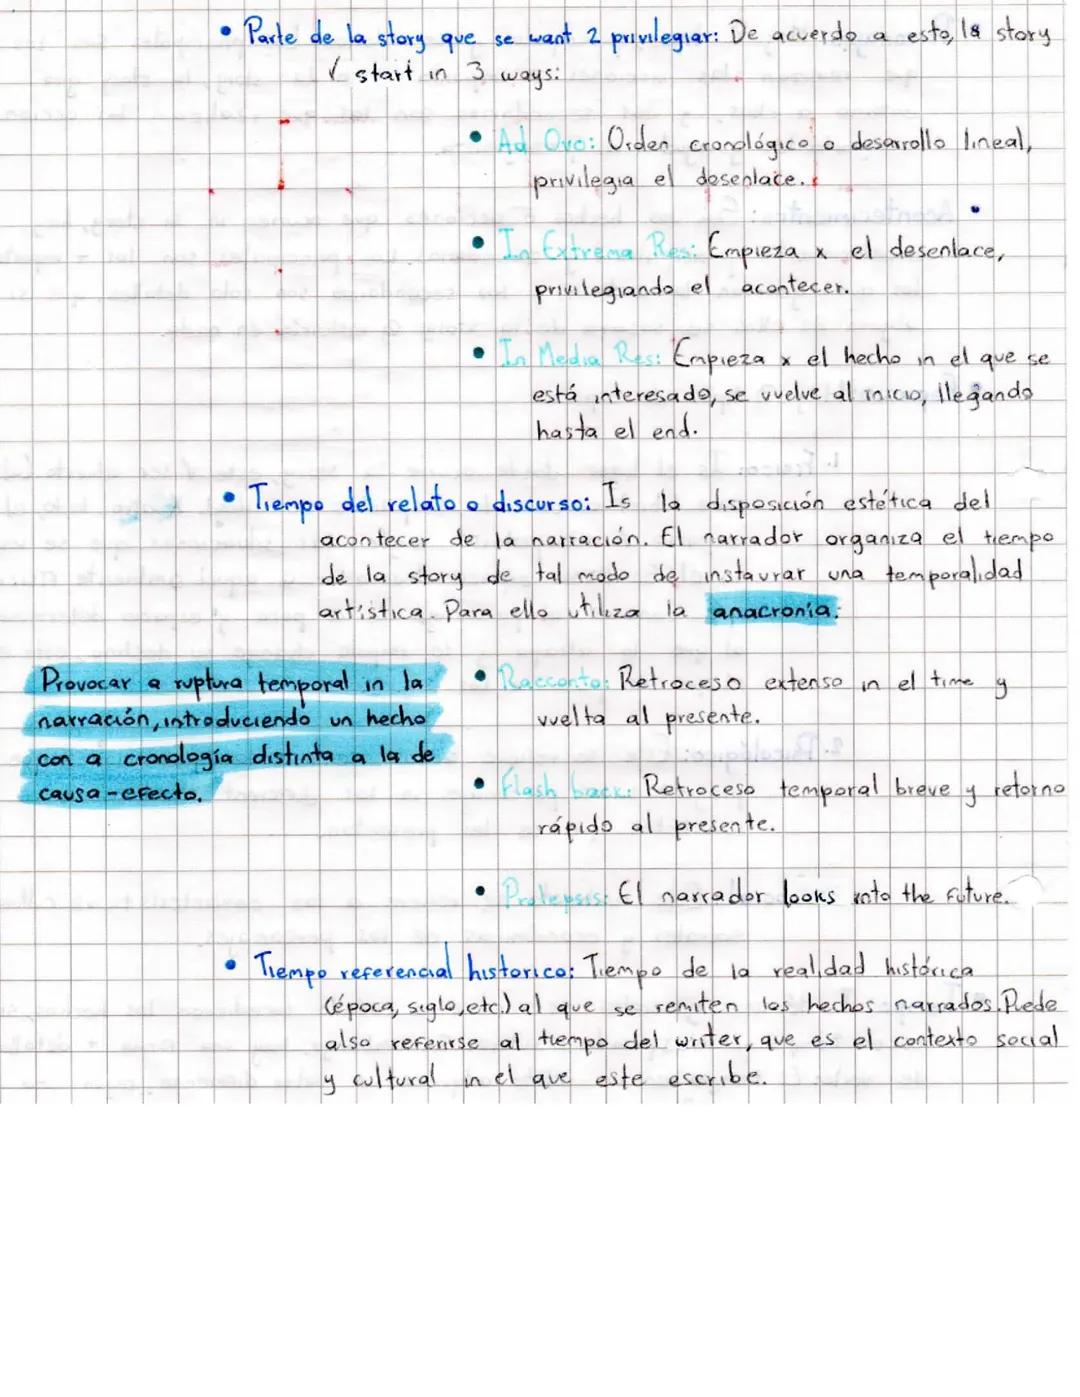 • Parte de la story que se want 2 privilegiar: De acuerdo a esto, la story
✓ start in 3 ways:
• Ad Ovo: Orden cronológico o desarrollo lineal,
privilegia el desenlace.
• In Extrema Res: Empieza x el desenlace,
privilegiando el acontecer.
• In Media Res: Empieza x el hecho in el que se
está interesado, se vuelve al inicio, llegando
hasta el end.
• Tiempo del relato o discurso: Is la disposición estética del
acontecer de la narración. El narrador organiza el tiempo
de la story de tal modo de instaurar una temporalidad
artística. Para ello utiliza la anacronía:
Provocar a ruptura temporal in la
narración, introduciendo un hecho
con a cronología distinta a la de
causa-efecto.
• Racconto: Retroceso extenso in el time y
vuelta al presente.
• Flash back: Retroceso temporal breve y retorno
rápido al presente.
• Prolepsis: El narrador looks into the future.
• Tiempo referencial historico: Tiempo de la realidad histórica
(época, siglo, etc.) al que se remiten los hechos narrados. Puede
also referirse al tiempo del writer, que es el contexto social
y cultural in el que este escribe.